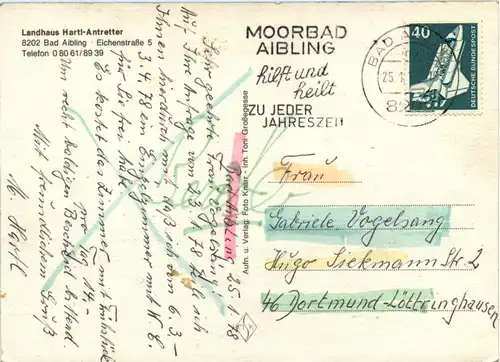 Landhaus Hartl-Antretter
8202 Bad Aibling · Eichenstraße 5
Telefon 0 80 61/89 39
Bad Aibling 25.1.78
Sehr geehrte Frau Vogelsang
Auf Ihre Anfrage v. 23.1.78 teile ich
Ihnen hierdurch mit, daß ich vom 6.3.-
3.4.78 ein Einzelzimmer mit W.C.
für Sie frei habe.
Es kostet das Zimmer mit Frühstück
pro Tag 14.-
Um recht baldigen Bescheid
Mit freundlichem Gruß
M. Hartl
Aufn. u. Verlag: Foto Knarr - Inh. Toni Großegesse
MOORBAD
AIBLING
hilft und
heilt
ZU JEDER
JAHRESZEIT
BAD
25.1.
82
40
DEUTSCHE BUNDESPOST
Frau
Gabriele Vogelsang
Hugo Siekmann Str. 2
46 Dortmund-Löttringhausen